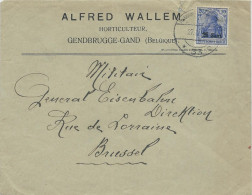 ALFRED WALLEM,
HORTICULTEUR,
GENDBRUGGE-GAND (BELGIQUE)
Militair
General Eisenbahn
Direktion
Rue de Lorraine
Brussel